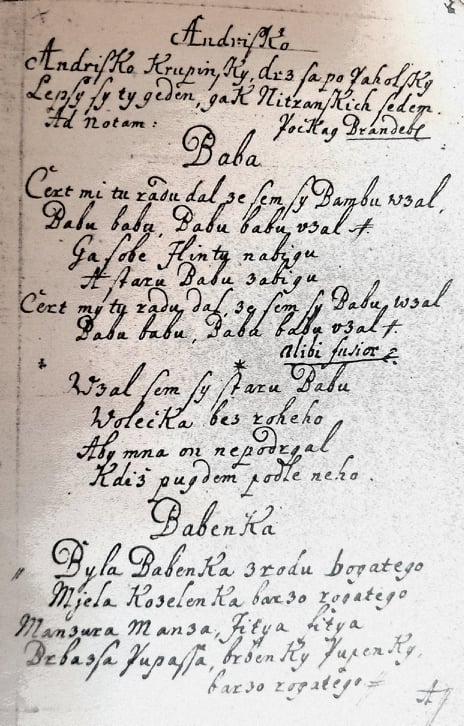 Andrisko
Andrisko Krupinsky, drz sa po Vaholsky
Lepsy sy ty geden, gak Nitranskich sedem
Ad Notam: Pockag Brandebl
Baba
Čert mi tu radu dal ze sem sy Bambu wzal,
Babu babu, Babu babu vzal #
Ga sobe Flintu nabigu
A staru Babu zabigu
Čert my tu radu dal, ze sem sy Babu wzal
Babu babu, Baba babu vzal #
alibi fusior
Wzal sem sy staru Babu
Wolečka bez roheho
Aby mna on nepodrgal
Kdiž pugdem podle neho.
Babenka
Byla Babenka zrodu bogatego
Mjela Kozelenka barzo rogatego
Manzura Manza, fitya fitya
Drbazsa Pupassa, brbenky Pupenky,
barzo rogatego #